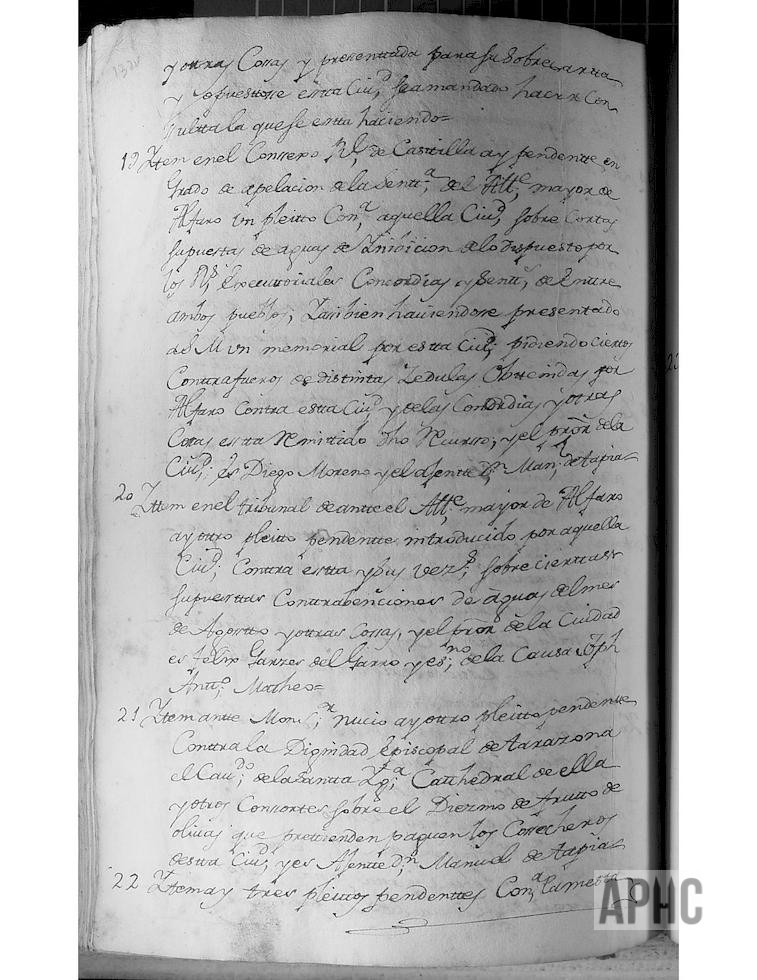 y otras Cosas y presentada para su Sobrecartta
y opuestose estta Ciu.d se a mandado hacer Con
sultta la que se estta haciendo=
19 Ytem en el Consexo Rl, de Casttilla ay pendentte en
Grado de apelacion de la Sentt.a, del Alle, mayor de
Alfaro Un pleitto Con.a aquella Ciu.d, sobre Cortas
supuestas de aguas de Ynibicion de lo dispuesto por
los Rs, Executtoriales Concordias y Sentt.s de Entre
ambos pueblos, Tanbien haviendose presentado
a S. M. un memorial por estta Ciu.d; pidiendo ciertos
Contrafueros de distintas Zedulas Obttenidas por
Alfaro Contra esta Ciu.d y de las Concordias y otras
Cosas estta Remitido dho Recurso, y el pror de la
Ciu.d; es Diego Moreno y el Ajentte D. Man.l de tapia=
20 Yttem en el tribunal de antte el Alle. mayor de Alfaro
ay otro pleitto pendentte introducido por aquella
Ciu.d; Contra estta y sus vez.s; sobre cierttas
supuesttas Conttrabenciones de aguas del mes
de Agostto y ottras Cosas, y el pror de la Ciudad
es Felix Garzes del Garro y es.no; de la Causa Jph
Antt.o; Matheo=
21 Ytem antte Mons.r; nucio ay otro pleitto pendentte
Contra la Dignidad Episcopal de Tarazona
el Cau.do; de la Santta Yg.a; Catthedral de ella
y otros Consortes sobre el Diezmo de frutto de
olivas que prettenden paguen los Cosecheros
de estta Ciu.d; y es Ajentte D.n Manuel de tapia=
22 Ytem ay tres pleittos pendenttes Con.a la metta
APHC